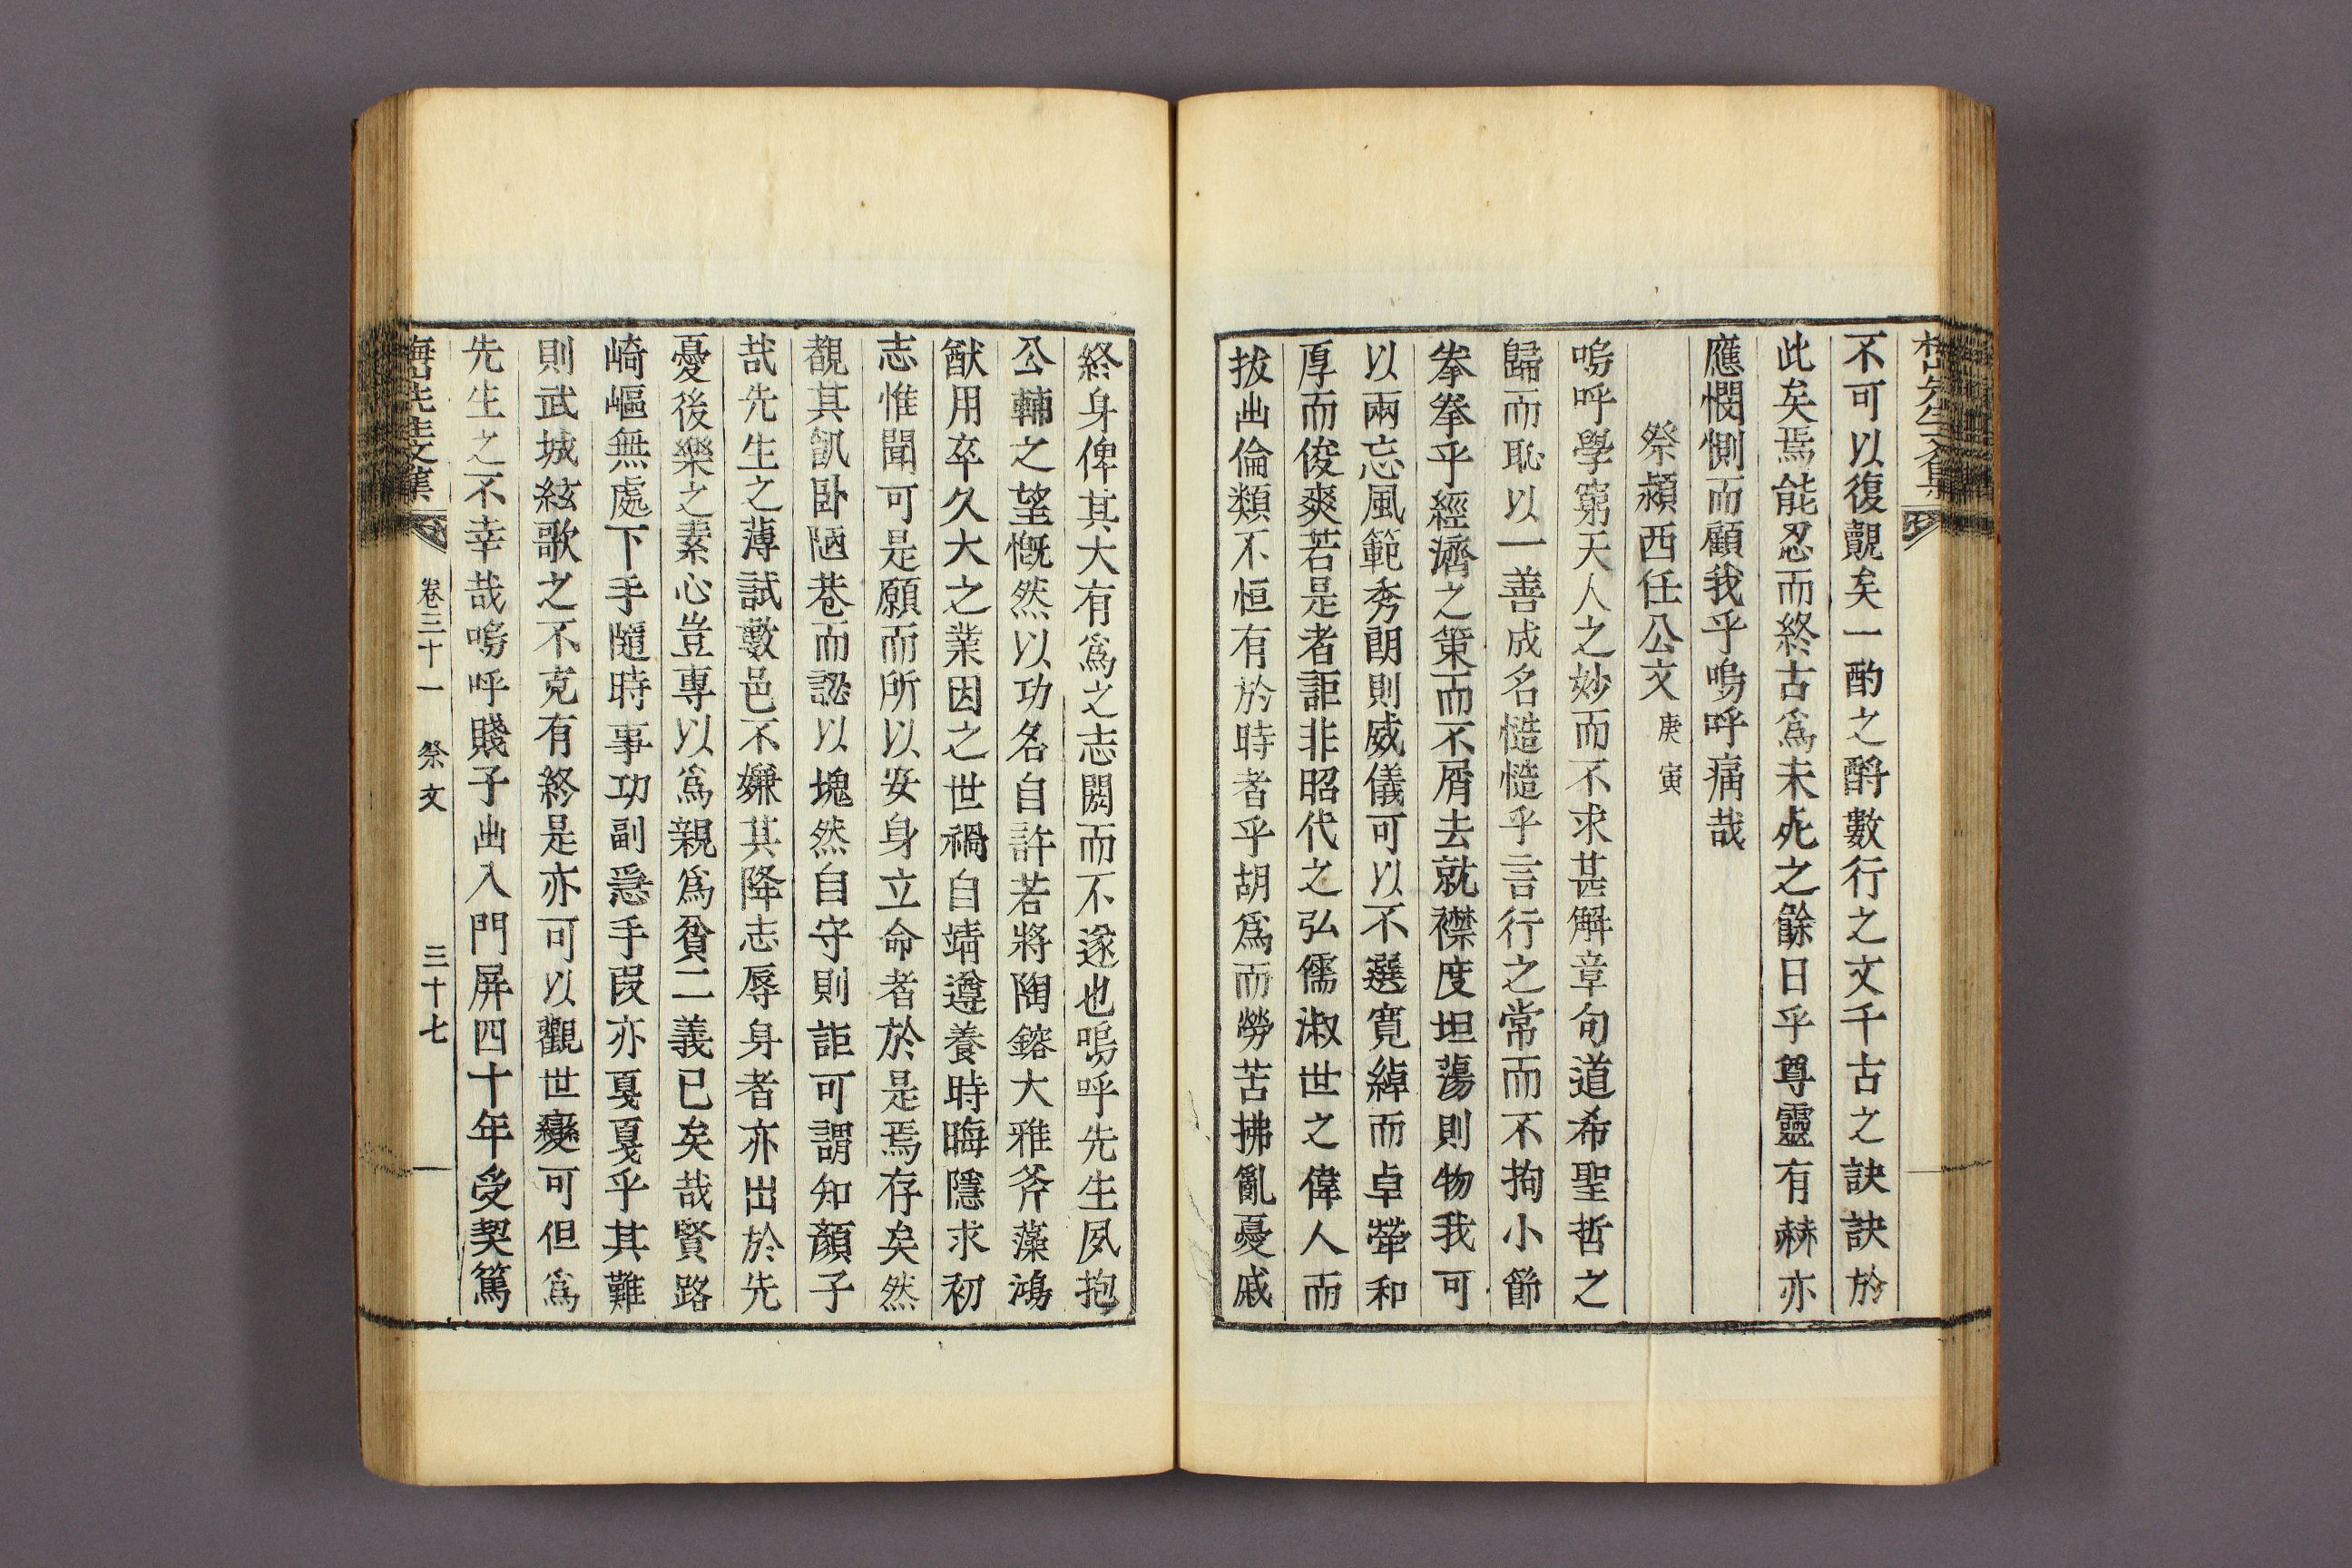 不可以復覿矣一酌之爵數行之文千古之訣訣於
此矣焉能忍而終古爲未死之餘日乎尊靈有赫亦
應憫惻而顧我乎嗚呼痛哉
祭潁西任公文 庚寅
嗚呼學窮天人之妙而不求甚解章句道希聖哲之
歸而恥以一善成名慥慥乎言行之常而不拘小節
拳拳乎經濟之策而不屑去就襟度坦蕩則物我可
以兩忘風範秀朗則威儀可以不選寬綽而卓犖和
厚而俊爽若是者詎非昭代之弘儒淑世之偉人而
拔出倫類不恒有於時者乎胡爲而勞苦拂亂憂戚
終身俾其大有爲之志閼而不遂也嗚呼先生夙抱
公輔之望慨然以功名自許若將陶鎔大雅斧藻鴻
猷用卒久大之業因之世禍自靖遵養時晦隱求初
志惟聞可是願而所以安身立命者於是焉存矣然
覩其飢卧陋巷而認以塊然自守則詎可謂知顔子
哉先生之薄試數邑不嫌其降志辱身者亦出於先
憂後樂之素心豈專以爲親爲貧二義已矣哉賢路
崎嶇無處下手隨時事功副急手段亦戛戛乎其難
則武城絃歌之不克有終是亦可以觀世變可但爲
先生之不幸哉嗚呼賤子出入門屏四十年受契篤
先生文集 卷三十一 祭文 三十七